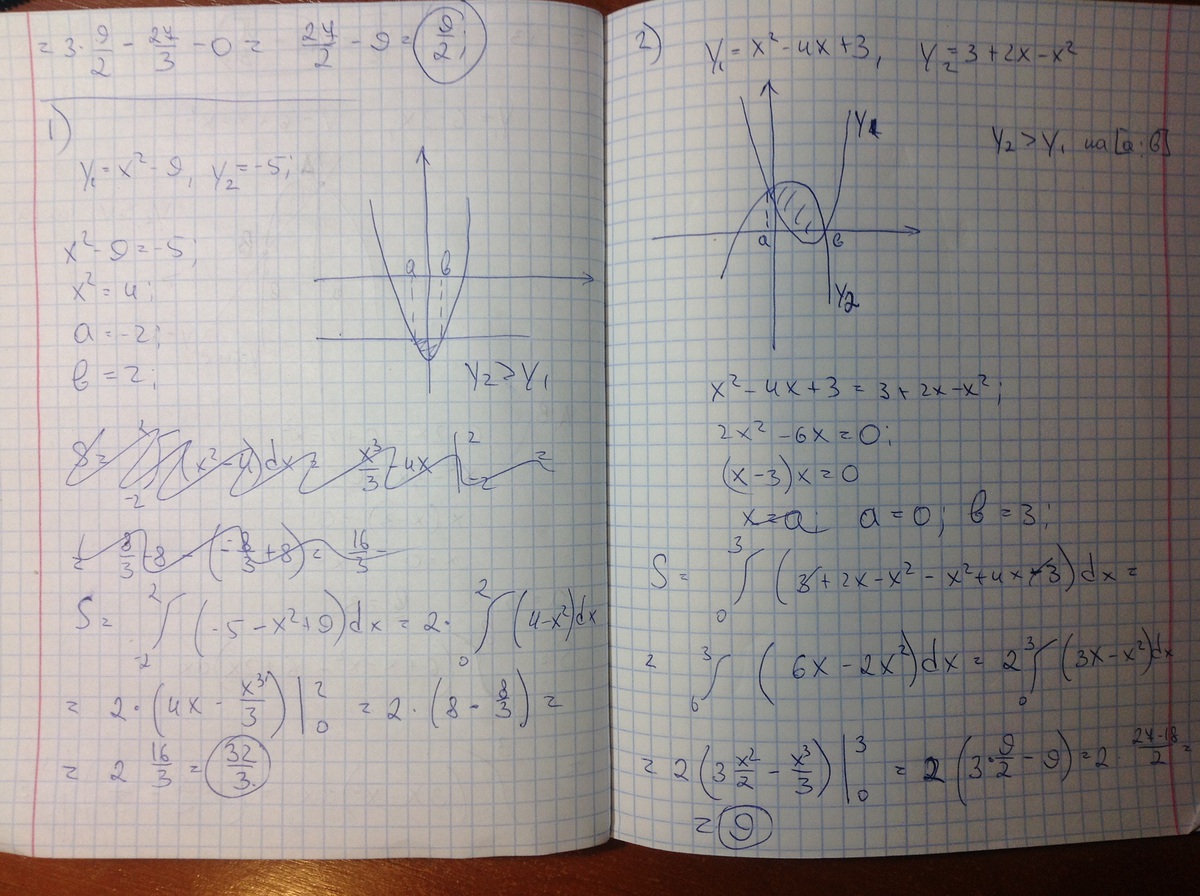 = 3 · 9/2 − 27/3 − 0 = 27/2 − 9 = 9/2;
1)
y₁ = x² − 9, y₂ = −5;
x² − 9 = −5;
x² = 4;
a = −2;
в = 2;
a в
y₂ > y₁
S = ∫₋₂² (x² − 4)dx = x³/3 − 4x |₋₂² =
= 8/3 − 8 − (−8/3 + 8) = 16/3 −
S = ∫₋₂² (−5 − x² + 9)dx = 2 · ∫₀² (4 − x²)dx
= 2 · (4x − x³/3) |₀² = 2 · (8 − 8/3) =
= 2 16/3 = 32/3.
2) y₁ = x² − 4x + 3, y₂ = 3 + 2x − x²
y₁
y₂ > y₁ на [a; в]
a в
y₂
x² − 4x + 3 = 3 + 2x − x²;
2x² − 6x = 0;
(x − 3)x = 0
x = a; a = 0; в = 3;
S = ∫₀³ (3 + 2x − x² − x² + 4x − 3)dx =
= ∫₀³ (6x − 2x²)dx = 2 ∫₀³ (3x − x²)dx
= 2 (3 x²/2 − x³/3) |₀³ = 2 (3 · 9/2 − 9) = 2 · (27 − 18)/2 =
= 9